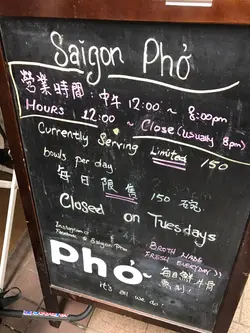 Saigon Phở
營業時間：中午 12:00 ~ 8:00pm
HOURS 12:00 ~ Close (usually 8pm)
Currently Serving Limited 150
bowls per day
每日限售 150 碗
Closed on Tuesdays
Instagram @
Facebook @ Saigon Pho
BROTH MADE
FRESH EVERYDAY
Phở
每日鮮牛骨
it's all we do.